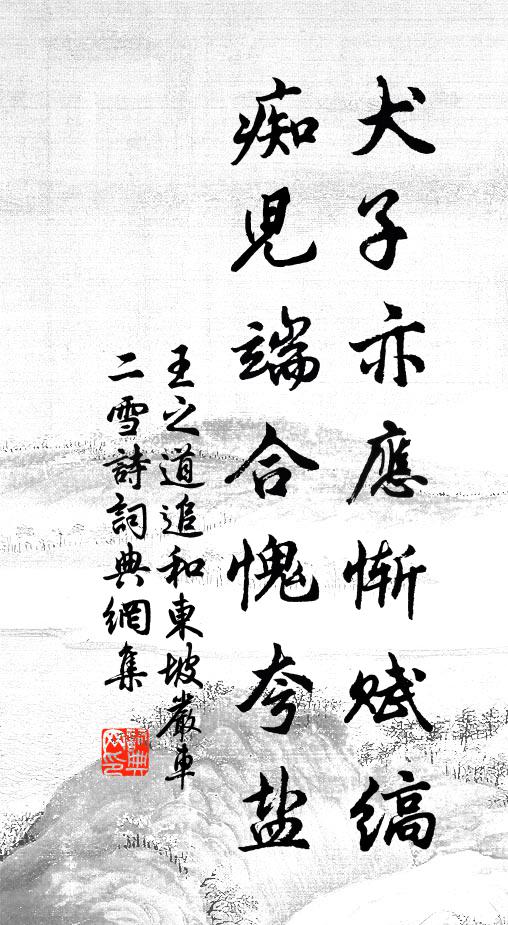 犬子亦應慚賦縞
痴児端合愧夸盐
王之道追和東坡嚴車
二雪詩詞典網集